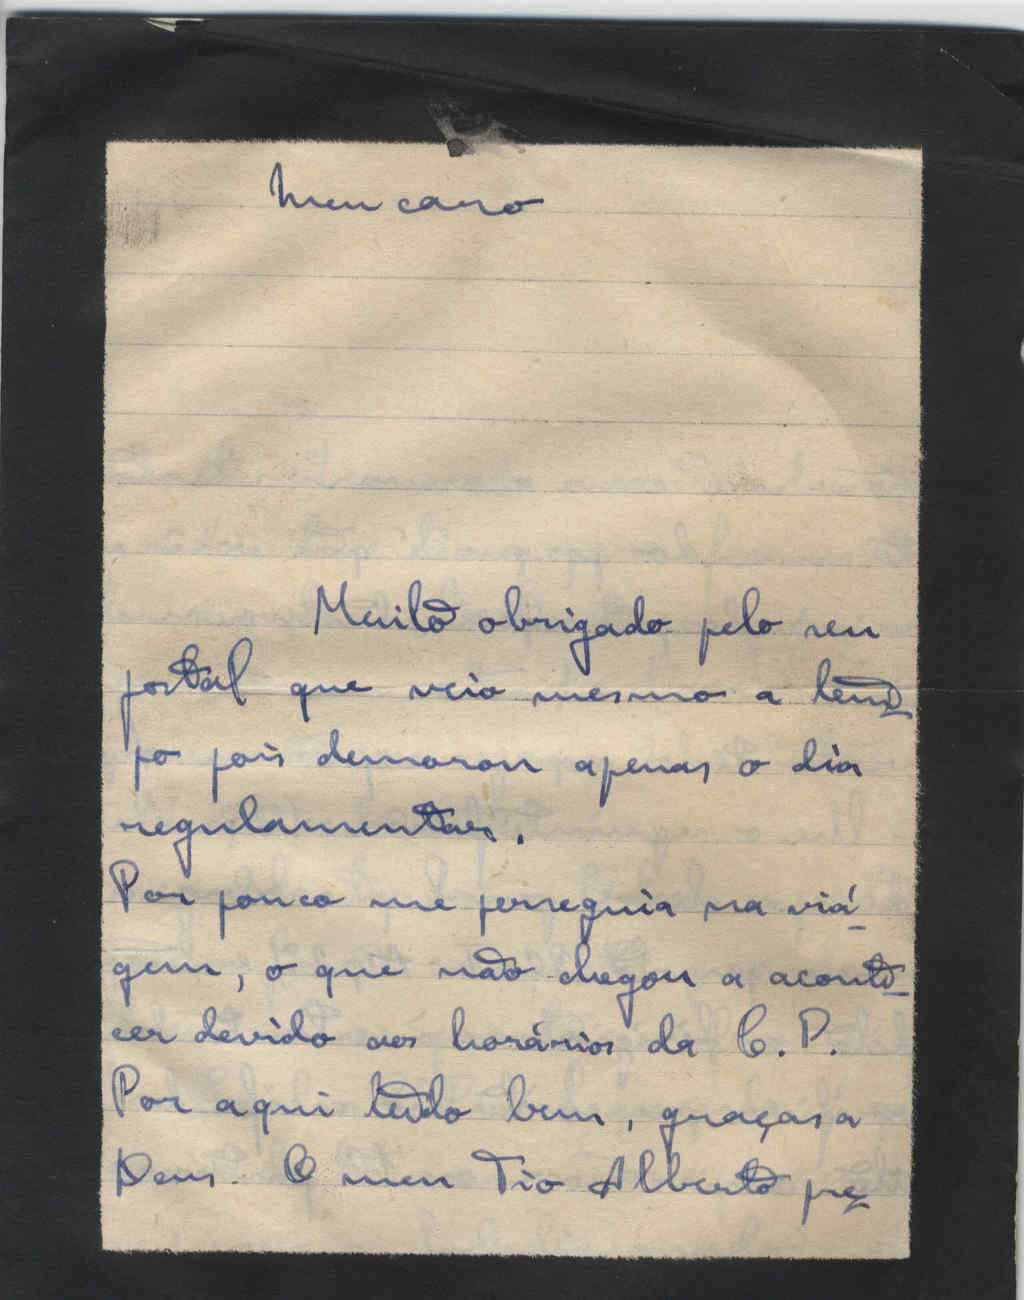 Meu caro
Muito obrigado pelo seu
postal que veio mesmo a tem-
po pois demorou apenas o dia
regulamentar.
Por pouco me perseguia na viá-
gem, o que não chegou a aconte-
cer devido aos horários da C.P.
Por aqui tudo bem, graças a
Deus. O meu Tio Alberto pre-